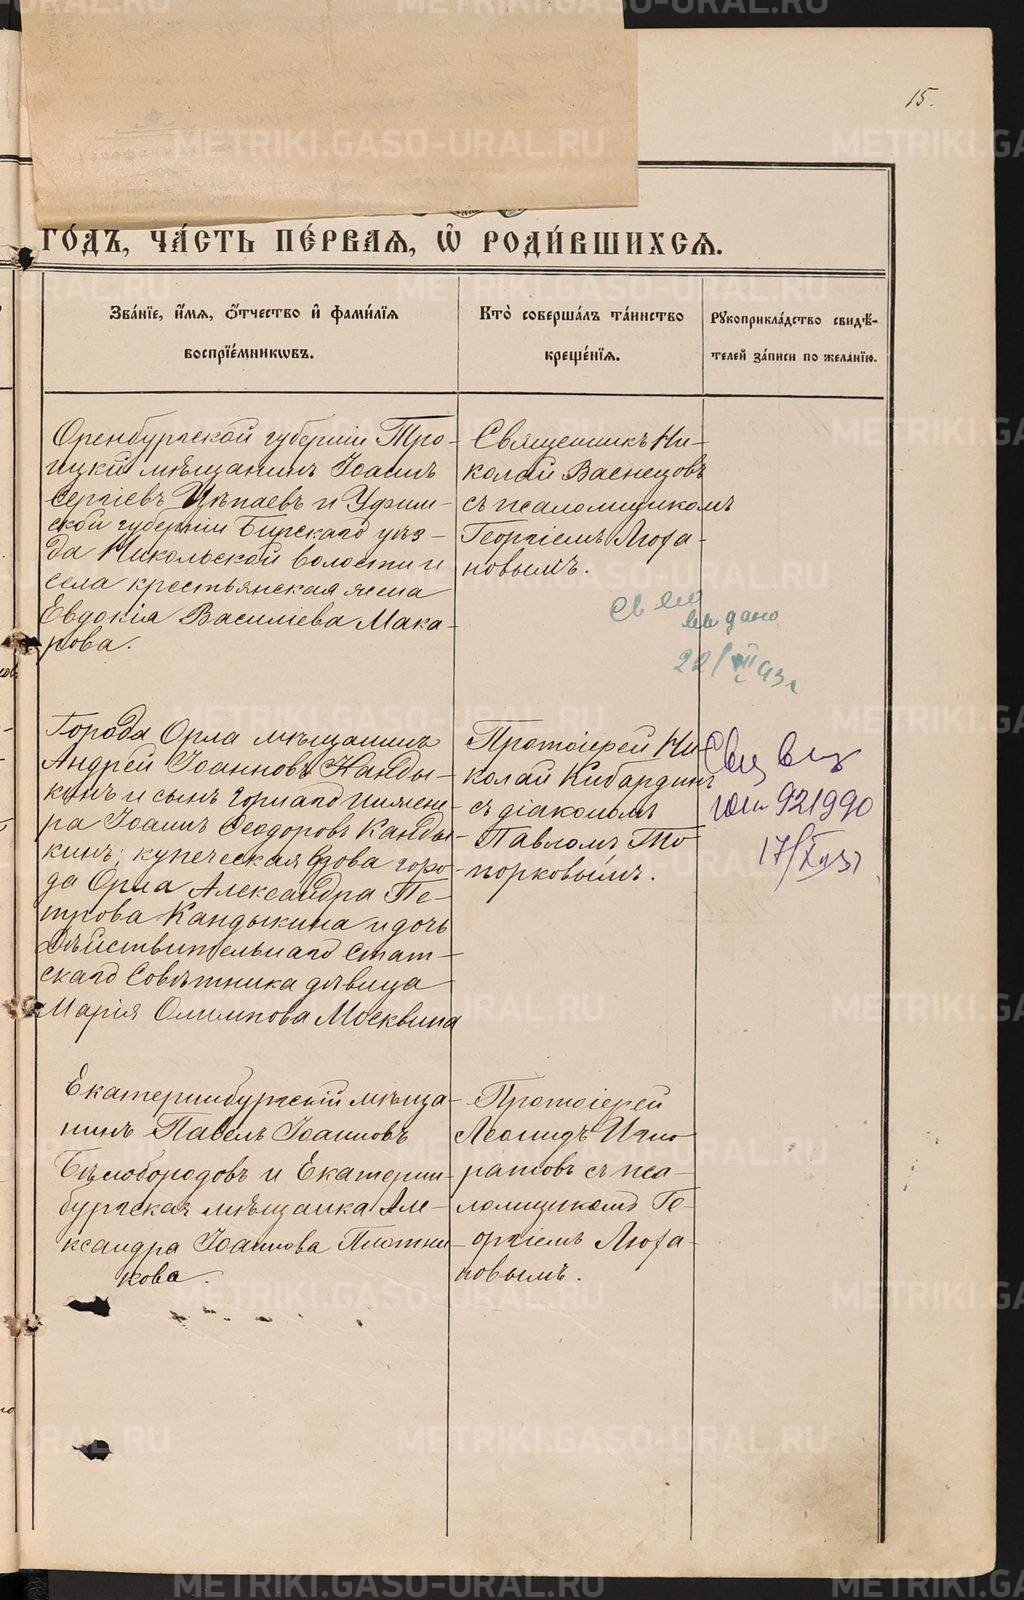 15.
ГО́ДЪ, ЧА́СТЬ ПЕ́РВАѦ, Ѡ҆ РОДИ́ВШИХСѦ.
Зва́нїе, и҆́мѧ, ѻ҆́тчество и҆ фами́лїѧ
воспрїе́мникѡвъ.
Кто̀ соверша́лъ та́инство
креще́нїѧ.
Рꙋкоприкла́дство свидѣ́-
телей за́писи по жела́нїю.
Оренбургской губернiи Тро-
ицкiй мѣщанинъ Iоаннъ
Сергiевъ Цѣпаевъ и Уфим-
ской губернiи Бирскаго уѣз-
да Никольской волости и
села крестьянская жена
Евдокiя Василiева Мака-
рова.
Священникъ Ни-
колай Васнецовъ
съ псаломщикомъ
Георгiемъ Люха-
новымъ.
дано
22/VII 43 г
Города Орла мѣщанинъ
Андрей Iоанновъ Канды-
кинъ и сынъ горнаго инжене-
ра Iоаннъ Ѳеодоровъ Канды-
кинъ; купеческая вдова горо-
да Орла Александра Пе-
трова Кандыкина и дочь
Дѣйствительнаго Стат-
скаго Совѣтника дѣвица
Марiя Олимпова Москвина
Протоiерей Ни-
колай Кибардинъ
съ дiакономъ
Павломъ То-
порковымъ.
921990
17/X
Екатеринбургскiй мѣща-
нинъ Павелъ Iоанновъ
Бѣлобородовъ и Екатерин-
бургская мѣщанка Але-
ксандра Iоаннова Плотни-
кова.
Протоiерей
Леонидъ Игно-
ратовъ съ пса-
ломщикомъ Ге-
оргiемъ Люха-
новымъ.
METRIKI.GASO-URAL.RU